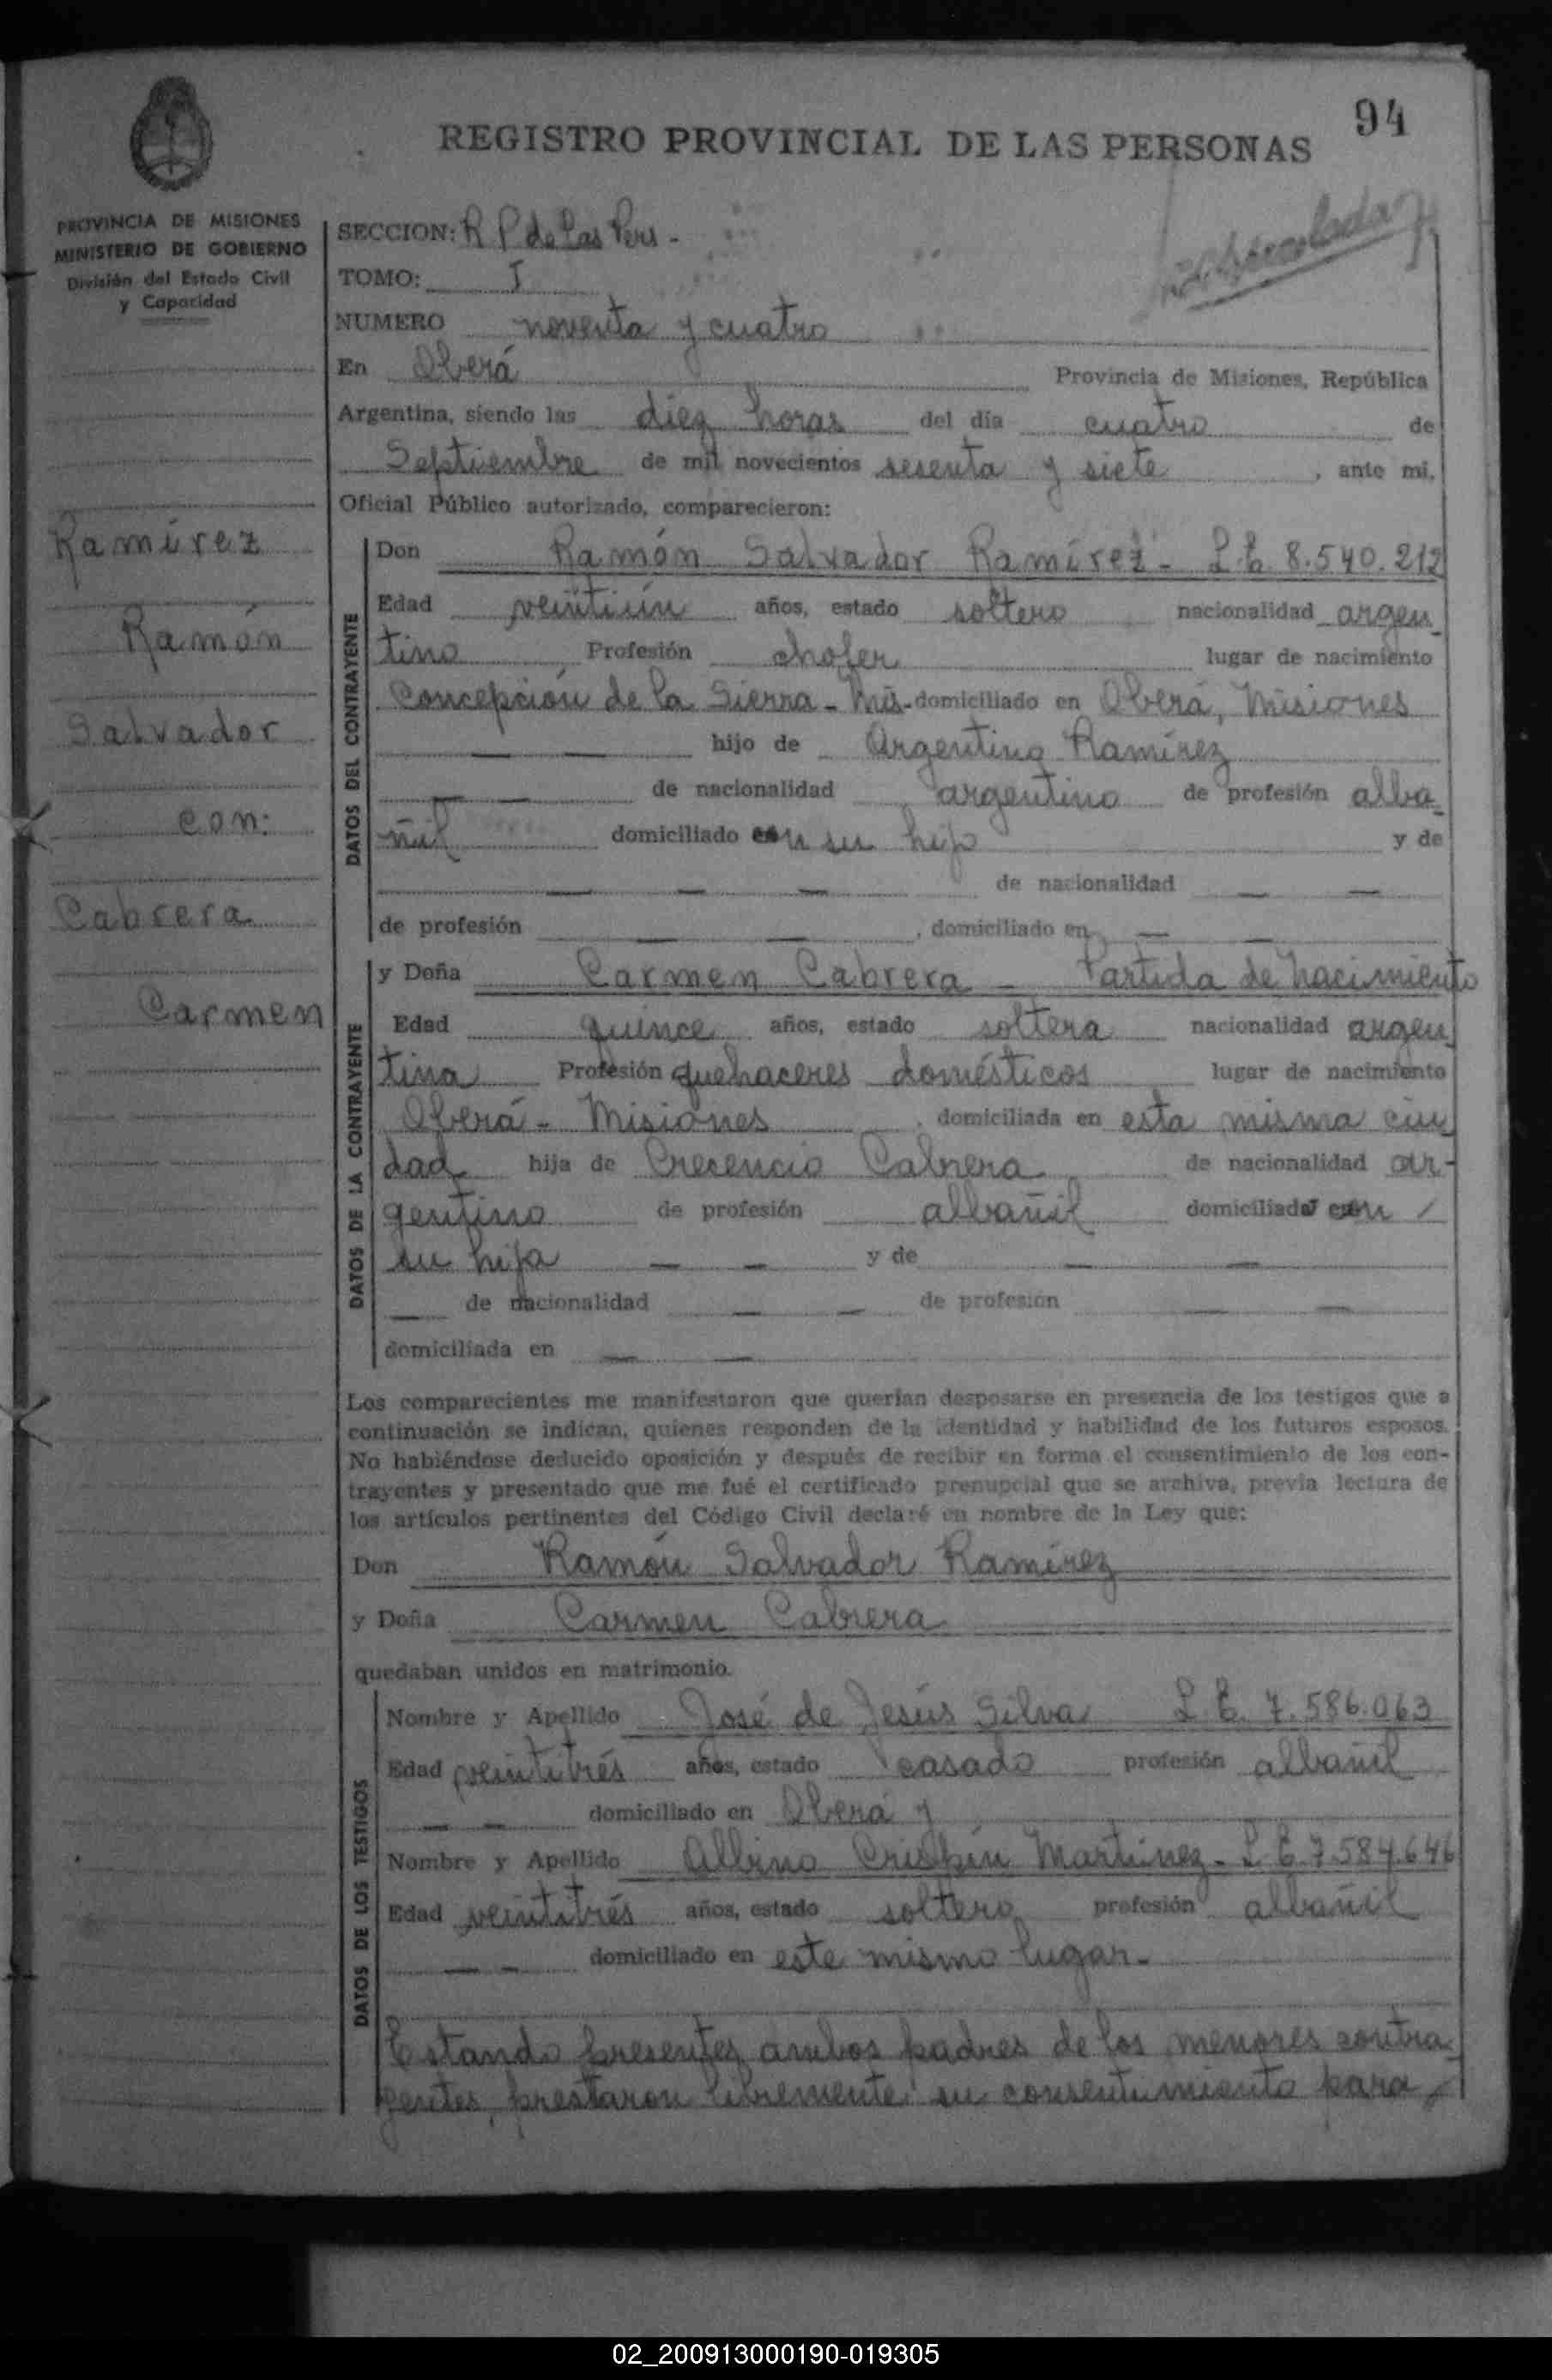 94
REGISTRO PROVINCIAL DE LAS PERSONAS
PROVINCIA DE MISIONES
MINISTERIO DE GOBIERNO
División del Estado Civil
y Capacidad
SECCION: R P de las Pers -
TOMO: I
NUMERO noventa y cuatro
En Oberá Provincia de Misiones, República
Argentina, siendo las diez horas del día cuatro de
Septiembre de mil novecientos sesenta y siete, ante mi,
Oficial Público autorizado, comparecieron:
Ramírez
Ramón
Salvador
con:
Cabrera
Carmen
DATOS DEL CONTRAYENTE
Don Ramón Salvador Ramírez - L.E. 8.540.212
Edad veintiún años, estado soltero nacionalidad argen
tino Profesión chofer lugar de nacimiento
Concepción de la Sierra - Mis - domiciliado en Oberá, Misiones
— — hijo de Argentino Ramírez
— — de nacionalidad argentino de profesión alba
ñil domiciliado con su hijo y de
— — — de nacionalidad — —
de profesión — — , domiciliado en — —
DATOS DE LA CONTRAYENTE
y Doña Carmen Cabrera - Partida de nacimiento
Edad quince años, estado soltera nacionalidad argen
tina Profesión quehaceres domésticos lugar de nacimiento
Oberá - Misiones domiciliada en esta misma ciu
dad hija de Crecencio Cabrera de nacionalidad ar-
gentino de profesión albañil domiciliado con
su hija — — y de — —
— de nacionalidad — — de profesión — —
domiciliada en — —
Los comparecientes me manifestaron que querían desposarse en presencia de los testigos que a
continuación se indican, quienes responden de la identidad y habilidad de los futuros esposos.
No habiéndose deducido oposición y después de recibir en forma el consentimiento de los con-
trayentes y presentado que me fué el certificado prenupcial que se archiva, previa lectura de
los artículos pertinentes del Código Civil declaré en nombre de la Ley que:
Don Ramón Salvador Ramírez
y Doña Carmen Cabrera
quedaban unidos en matrimonio.
DATOS DE LOS TESTIGOS
Nombre y Apellido José de Jesús Silva L.E. 7.586.063
Edad veintitrés años, estado casado profesión albañil
— — domiciliado en Oberá y
Nombre y Apellido Albino Crispín Martínez - L.E. 7.584.646
Edad veintitrés años, estado soltero profesión albañil
— — domiciliado en este mismo lugar -
Estando presentes ambos padres de los menores contra
yentes, prestaron libremente su consentimiento para
02_200913000190-019305